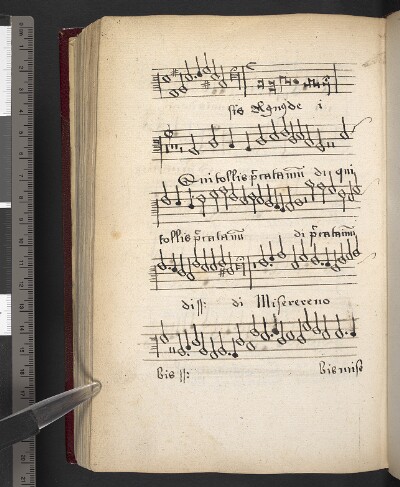 sis Agnyde i
Qui tollis pccatamu di qui
tollis pccatamu di pccatamu
diss: di Miserereno
bis ss: bis mise